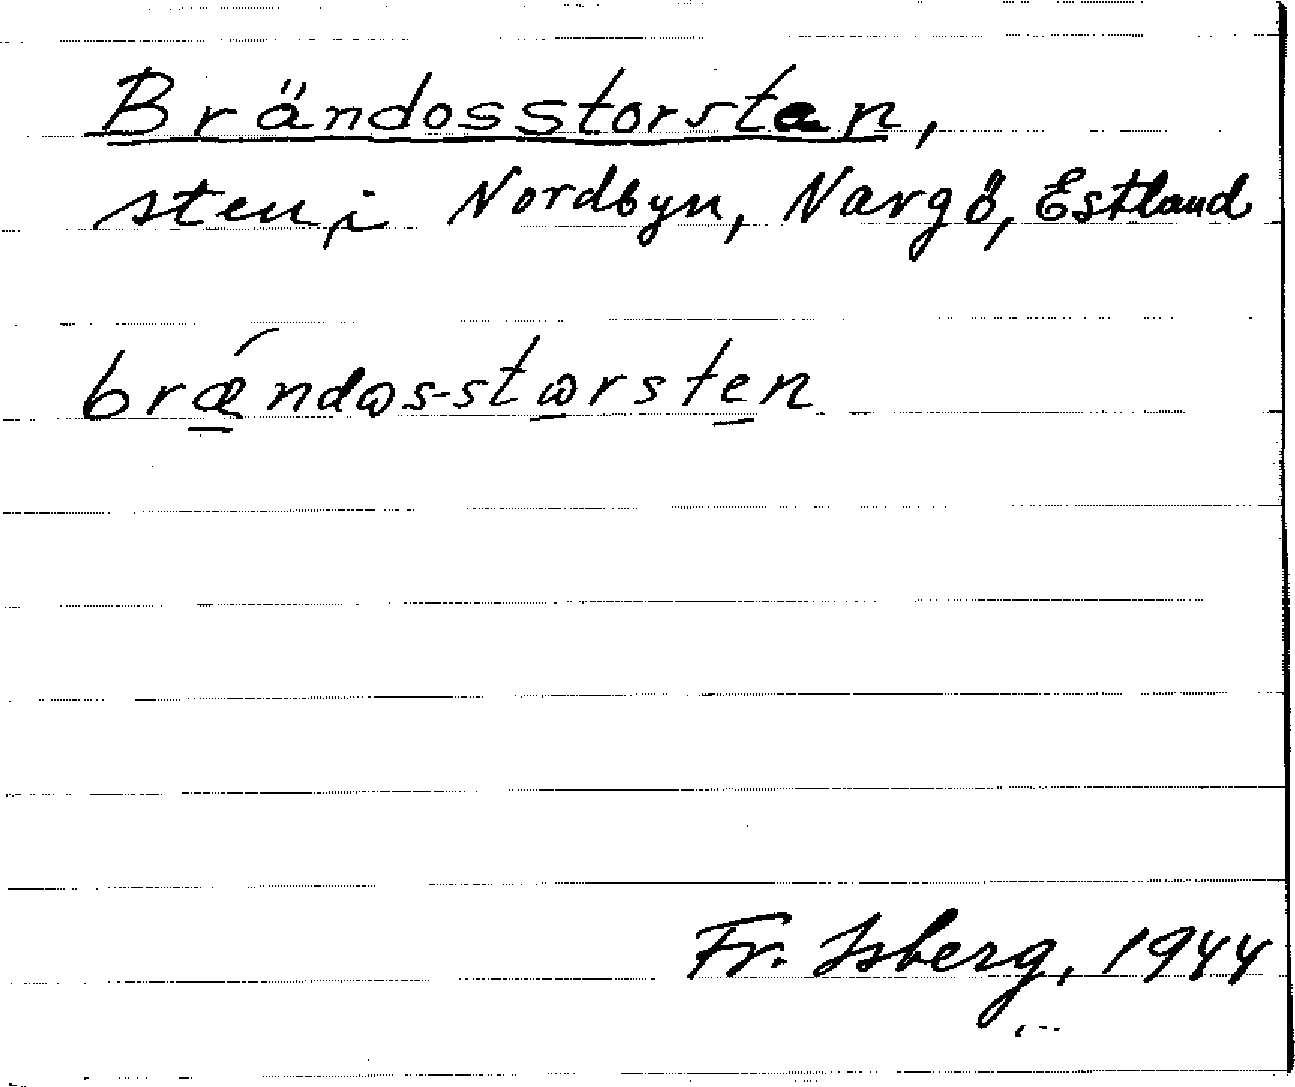 Brändosstorsten,
sten, i Nordbyn, Nargö, Estland
brǽndɷs-stɷrsten
Fr. Isberg, 1944